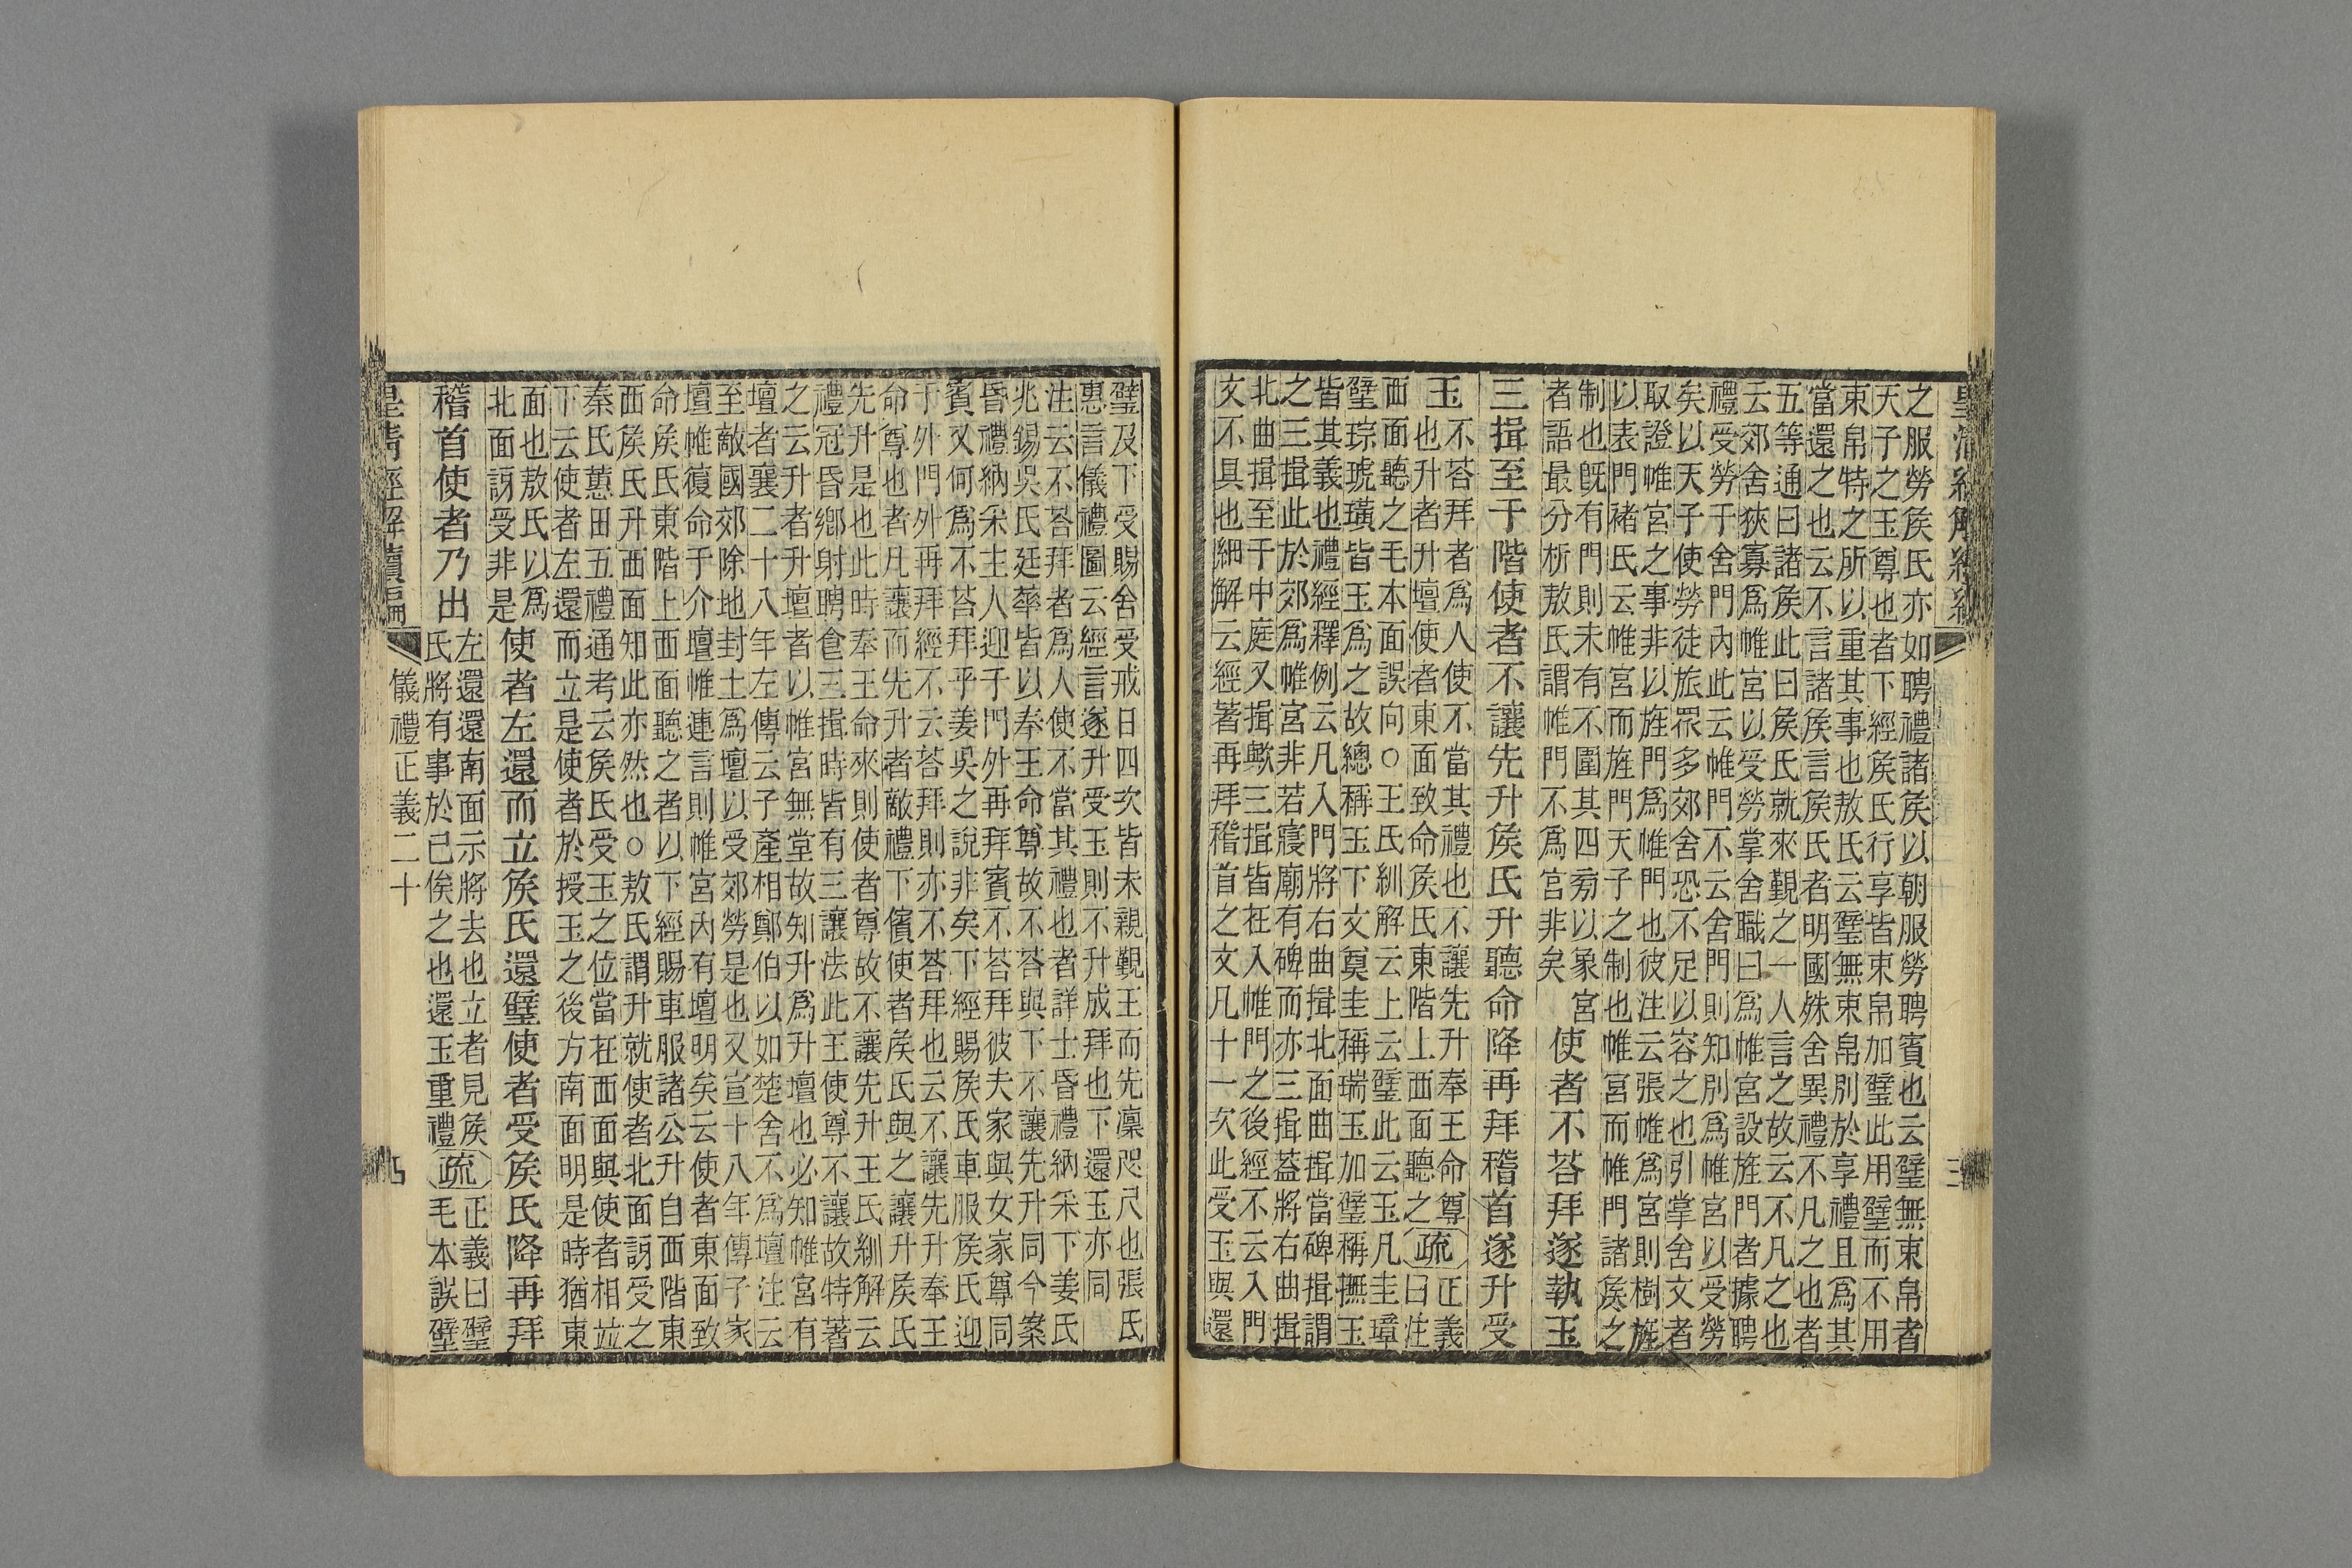 之服勞矦氏亦如聘禮諸矦以朝服勞聘賓也云璧無束帛者
天子之玉尊也者下經矦氏行享皆束帛加璧此用璧而不用
束帛特之所以重其事也敖氏云璧無束帛別於享禮且爲其
當還之也云不言諸矦言矦氏者明國殊舍異禮不凡之也者
五等通曰諸矦此曰矦氏就來覲之一人言之故云不凡之也
云郊舍狹寡爲帷宮以受勞掌舍職曰爲帷宮設旌門者據聘
禮受勞于舍門內此云帷門不云舍門則知別爲帷宮以受勞
矣以天子使勞徒旅眾多郊舍恐不足以容之也引掌舍文者
取證帷宮之事非以旌門爲帷門也彼注云張帷爲宮則樹旌
以表門褚氏云帷宮而旌門天子之制也帷宮而帷門諸矦之
制也旣有門則未有不圍其四旁以象宮
者語最分析敖氏謂帷門不爲宮非矣
使者不荅拜遂執玉
三揖至于階使者不讓先升矦氏升聽命降再拜稽首遂升受
玉
不荅拜者爲人使不當其禮也不讓先升奉王命尊
也升者升壇使者東面致命矦氏東階上西面聽之
疏
正義
曰注
西面聽之毛本面誤向○王氏紃解云上云璧此云玉凡圭璋
璧琮琥璜皆玉爲之故總稱玉下文奠圭稱瑞玉加璧稱撫玉
皆其義也禮經釋例云凡入門將右曲揖北面曲揖當碑揖謂
之三揖此於郊爲帷宮非若寢廟有碑而亦三揖葢將右曲揖
北曲揖至于中庭又揖歟三揖皆在入帷門之後經不云入門
文不具也細解云經著再拜稽首之文凡十一次此受玉與還
璧及下受賜舍受戒日四次皆未親覲王而先凜咫尺也張氏
惠言儀禮圖云經言遂升受玉則不升成拜也下還玉亦同
注云不荅拜者爲人使不當其禮也者詳士昏禮納采下姜氏
兆錫吳氏廷華皆以奉王命尊故不荅與下不讓先升同今案
昏禮納采主人迎于門外再拜賓不荅拜彼夫家與女家尊同
賓又何爲不荅拜乎姜吳之說非矣下經賜矦氏車服矦氏迎
于外門外再拜經不云荅拜則亦不荅拜也云不讓先升奉王
命尊也者凡讓而先升者敵禮下儐使者矦氏與之讓升矦氏
先升是也此時奉王命來則使者尊故不讓先升王氏紃解云
禮冠昏鄉射聘食三揖時皆有三讓法此王使尊不讓故特著
之云升者升壇者以帷宮無堂故知升爲升壇也必知帷宮有
壇者襄二十八年左傳云子產相鄭伯以如楚舍不爲壇注云
至敵國郊除地封土爲壇以受郊勞是也又宣十八年傳子家
壇帷復命于介壇帷連言則帷宮內有壇明矣云使者東面致
命矦氏東階上西面聽之者以下經賜車服諸公升自西階東
西矦氏升西面知此亦然也○敖氏謂升就使者北面訝受之
秦氏蕙田五禮通考云矦氏受玉之位當在西面與使者相竝
下云使者左還而立是使者於授玉之後方南面明是時猶東
面也敖氏以爲
北面訝受非是
使者左還而立矦氏還璧使者受矦氏降再拜
稽首使者乃出
左還還南面示將去也立者見矦
氏將有事於己俟之也還玉重禮
疏
正義曰璧
毛本誤璧
皇清經解續編
儀禮正義二十